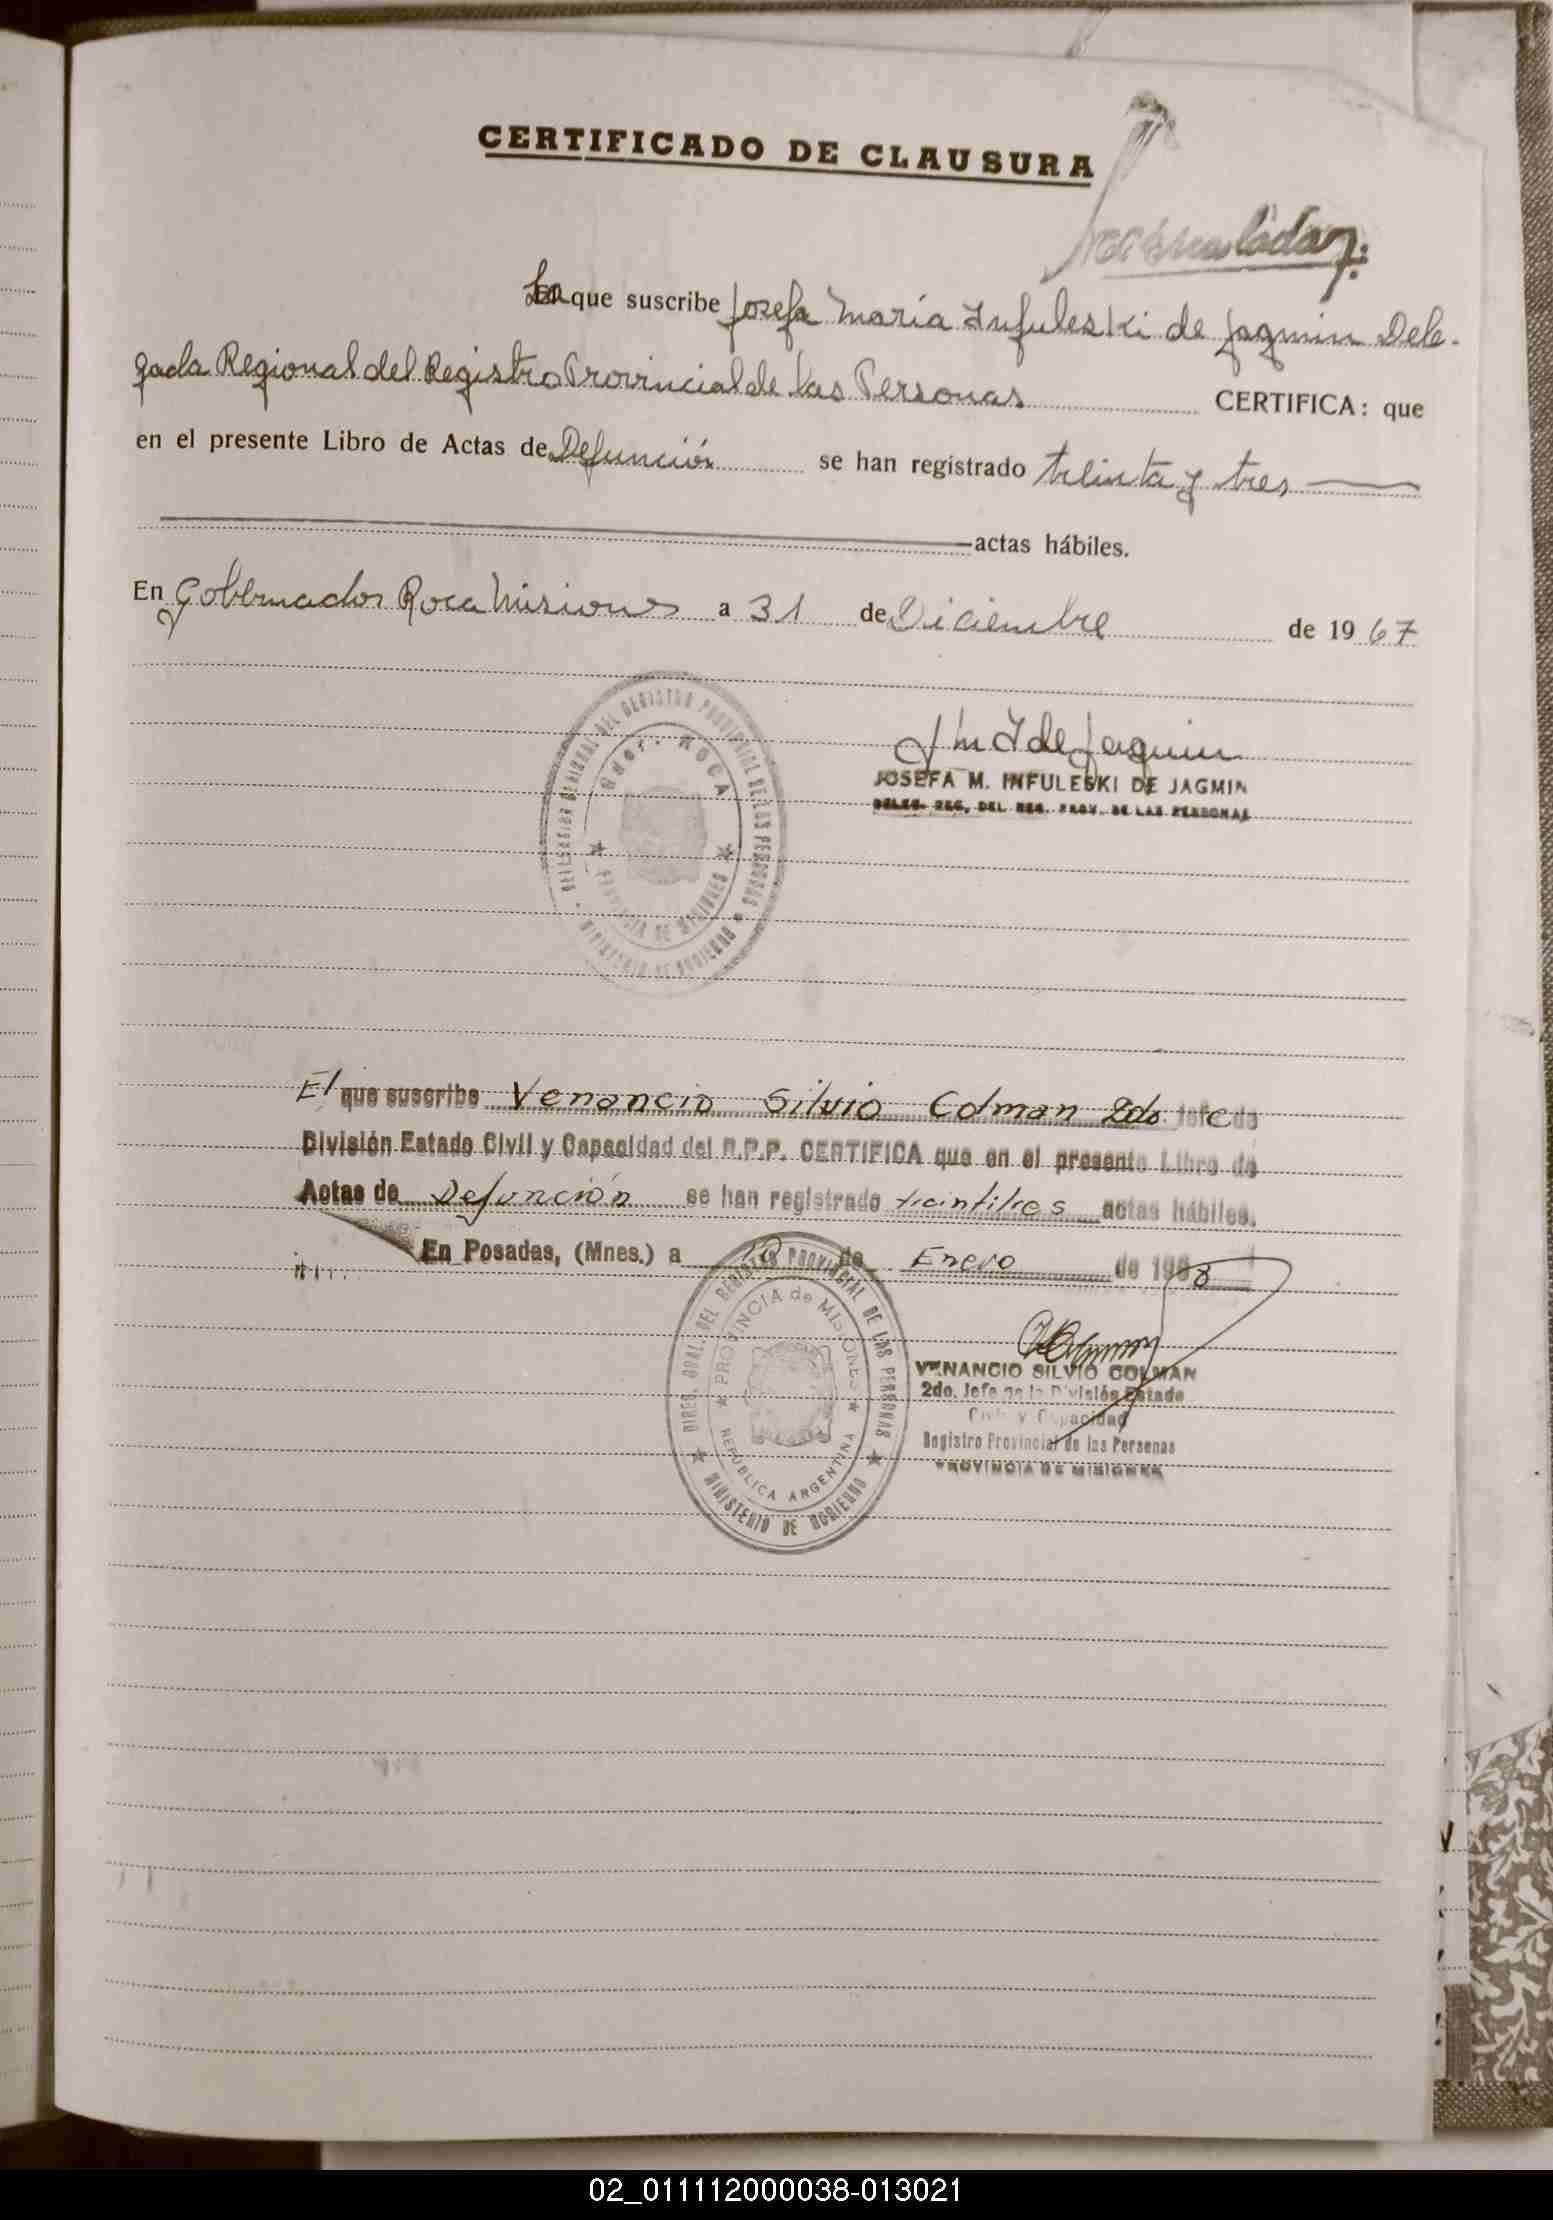 CERTIFICADO DE CLAUSURA
La que suscribe Josefa María Infuleski de Jagmin Dele-
gada Regional del Registro Provincial de las Personas CERTIFICA: que
en el presente Libro de Actas de Defunción se han registrado treinta y tres
actas hábiles.
En Gobernador Roca Misiones a 31 de Diciembre de 1967
DELEGACION REGIONAL DEL REGISTRO PROVINCIAL DE LAS PERSONAS
Gdor. ROCA
PROVINCIA DE MISIONES
MINISTERIO DE GOBIERNO
J M I de Jagmin
JOSEFA M. INFULESKI DE JAGMIN
DELEG. REG. DEL REG. PROV. DE LAS PERSONAS
El que suscribe Venancio Silvio Colman 2do. Jefe de
División Estado Civil y Capacidad del R.P.P. CERTIFICA que en el presente Libro de
Actas de Defunción se han registrado treintitres actas hábiles.
En Posadas, (Mnes.) a 10 de Enero de 1968
DIREC. GRAL. DEL REGISTRO PROVINCIAL DE LAS PERSONAS
PROVINCIA de MISIONES
REPUBLICA ARGENTINA
MINISTERIO DE GOBIERNO
VENANCIO SILVIO COLMAN
2do. Jefe de la División Estado
Civil y Capacidad
Registro Provincial de las Personas
PROVINCIA DE MISIONES
02_011112000038-013021